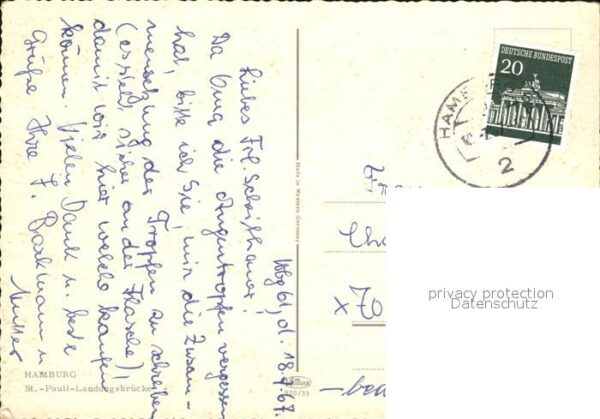 Hbg 61, d. 18.7.67.
Liebes Frl. Scheithauer!
Da Oma die Augentropfen vergessen
hat, bitte ich Sie, mir die Zusam-
mensetzung der Tropfen zu schreiben
(es steht sicher an der Flasche),
damit wir hier welche kaufen
können. Vielen Dank u. beste
Grüße Ihre I. Barkmann u
Mutter
HAMBURG
St.-Pauli-Landungsbrücke
Made in Western Germany
910/33
DEUTSCHE BUNDESPOST
20
HAMB
2
Frau
Che
x 70
privacy protection
Datenschutz